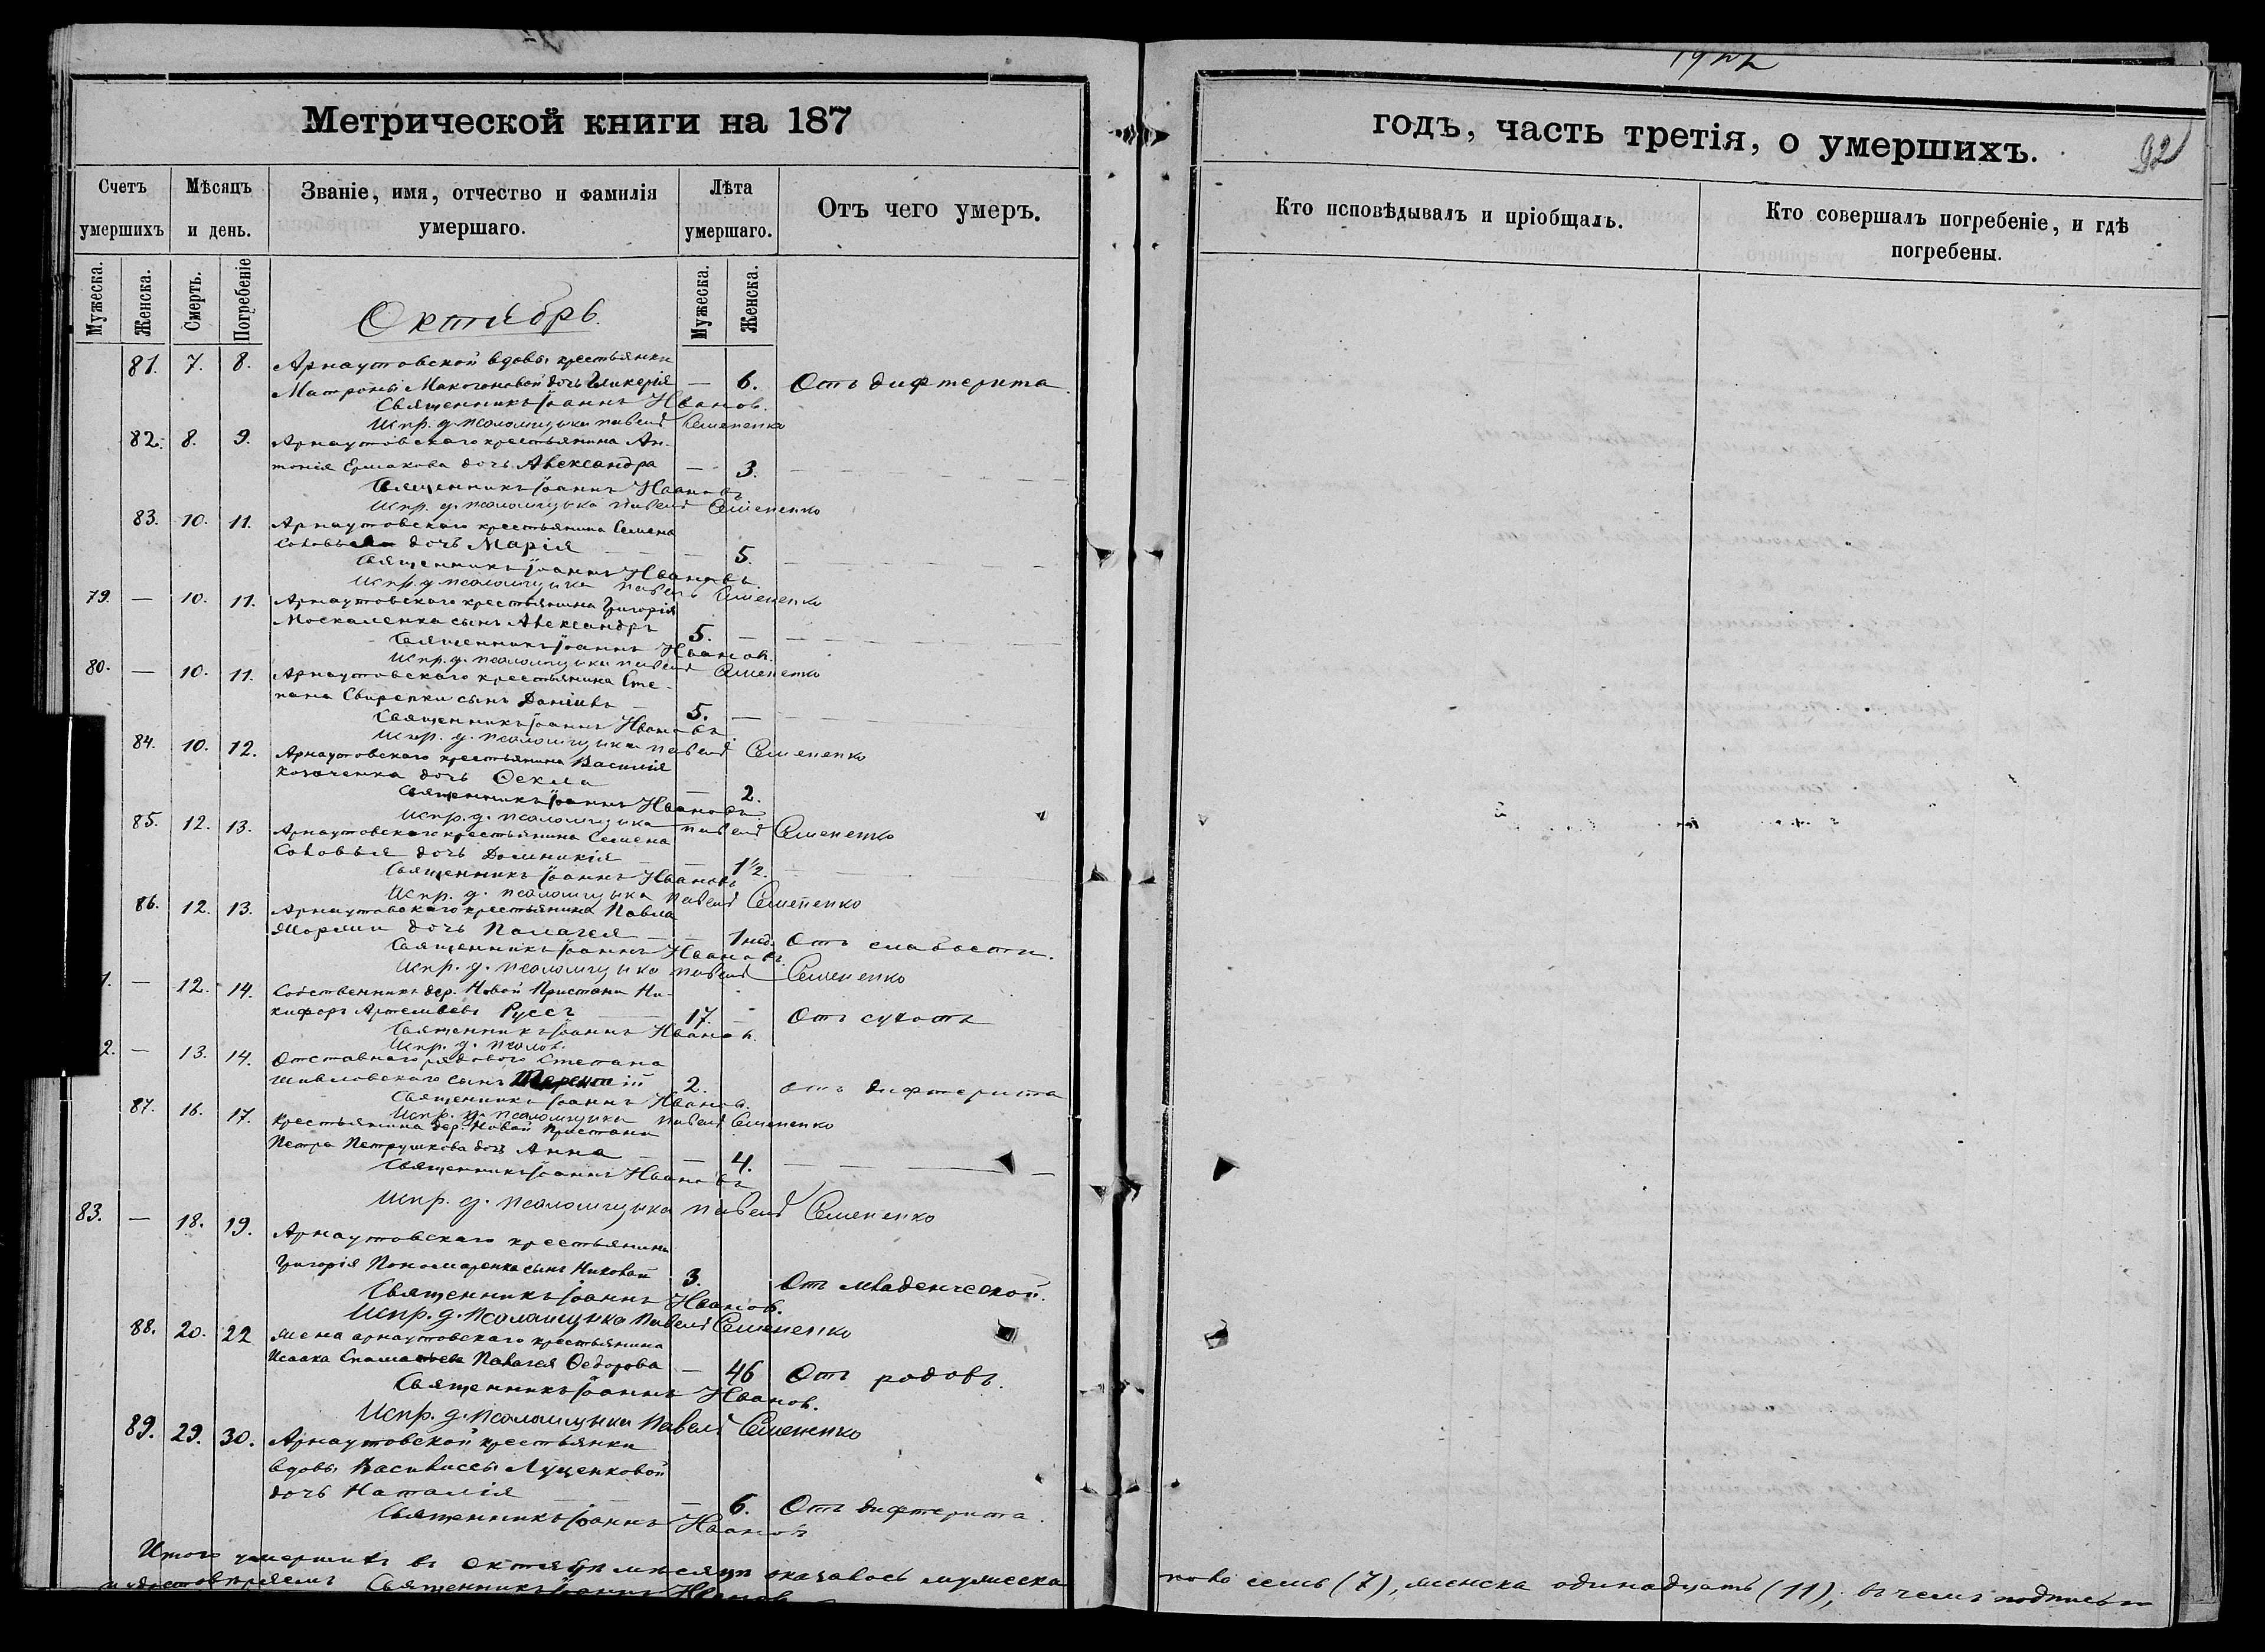 Метрической книги на 187
годъ, часть третія, о умершихъ.
92
Счетъ умершихъ
Мѣсяцъ и день.
Званіе, имя, отчество и фамилія умершаго.
Лѣта умершаго.
Отъ чего умеръ.
Кто исповѣдывалъ и пріобщалъ.
Кто совершалъ погребеніе, и гдѣ погребены.
Мужеска.
Женска.
Смерть.
Погребеніе
Мужеска.
Женска.
Октябрь.
81. 7. 8. Арнаутовской вдовы крестьянки
Матроны Макогоновой дочь Гликерія — 6. Отъ дифтерита
Священникъ Іоаннъ Ивановъ.
Испр. д. псаломщика Павелъ Семененко
82. 8. 9. Арнаутовскаго крестьянина Ан-
тонія Ермакова дочь Александра — 3. —
Священникъ Іоаннъ Ивановъ
Испр. д. псаломщика Павелъ Семененко
83. 10. 11. Арнаутовскаго крестьянина Семена
Соловья дочь Марія — 5. —
Священникъ Іоаннъ Ивановъ.
Испр. д. псаломщика Павелъ Семененко
79. — 10. 11. Арнаутовскаго крестьянина Григорія
Москаленка сынъ Александръ 5. —
Священникъ Іоаннъ Ивановъ.
Испр. д. псаломщика Павелъ Семененко
80. — 10. 11. Арнаутовскаго крестьянина Сте-
пана Свирепки сынъ Даніилъ 5. —
Священникъ Іоаннъ Ивановъ.
Испр. д. псаломщика Павелъ Семененко
84. 10. 12. Арнаутовскаго крестьянина Василія
Козаченка дочь Ѳекла — 2.
Священникъ Іоаннъ Ивановъ.
Испр. д. псаломщика Павелъ Семененко
85. 12. 13. Арнаутовскаго крестьянина Семена
Соловья дочь Домникія — 1½. —
Священникъ Іоаннъ Ивановъ
Испр. д. псаломщика Павелъ Семененко
86. 12. 13. Арнаутовскаго крестьянина Павла
дочь Палагея — 1 нед. Отъ слабости.
Священникъ Іоаннъ Ивановъ.
Испр. д. псаломщика Павелъ Семененко
1. — 12. 14. Собственникъ дер. Новой Пристани Ни-
кифоръ Артемьевъ Руссъ 17. - Отъ сухоты
Священникъ Іоаннъ Ивановъ.
Испр. д. псалом.
2. — 13. 14. Отставнаго рядового Степана
сынъ Терентій 2. отъ дифтерита
Священникъ Іоаннъ Ивановъ.
Испр. д. псаломщика Павелъ Семененко
87. 16. 17. Крестьянина дер. Новой Пристани
Петра Петрушкова дочь Анна — 4. —
Священникъ Іоаннъ Ивановъ
Испр. д. псаломщика Павелъ Семененко
83. — 18. 19. Арнаутовскаго крестьянина
Григорія Пономаренка сынъ Николай 3. Отъ младенческой.
Священникъ Іоаннъ Ивановъ.
Испр. д. псаломщика Павелъ Семененко
88. 20. 22 Жена арнаутовскаго крестьянина
Исаака Палагея Ѳедорова — 46 Отъ родовъ.
Священникъ Іоаннъ Ивановъ.
Испр. д. псаломщика Павелъ Семененко
89. 29. 30. Арнаутовской крестьянки
вдовы Василиссы Луценковой
дочь Наталія — 6. Отъ дифтерита.
Священникъ Іоаннъ Ивановъ
Итого умершихъ въ октябрѣ мѣсяцѣ оказалось мужеска
пола семь (7), женска одинадцать (11), въ чемъ подписью
и Священникъ Іоаннъ Ивановъ